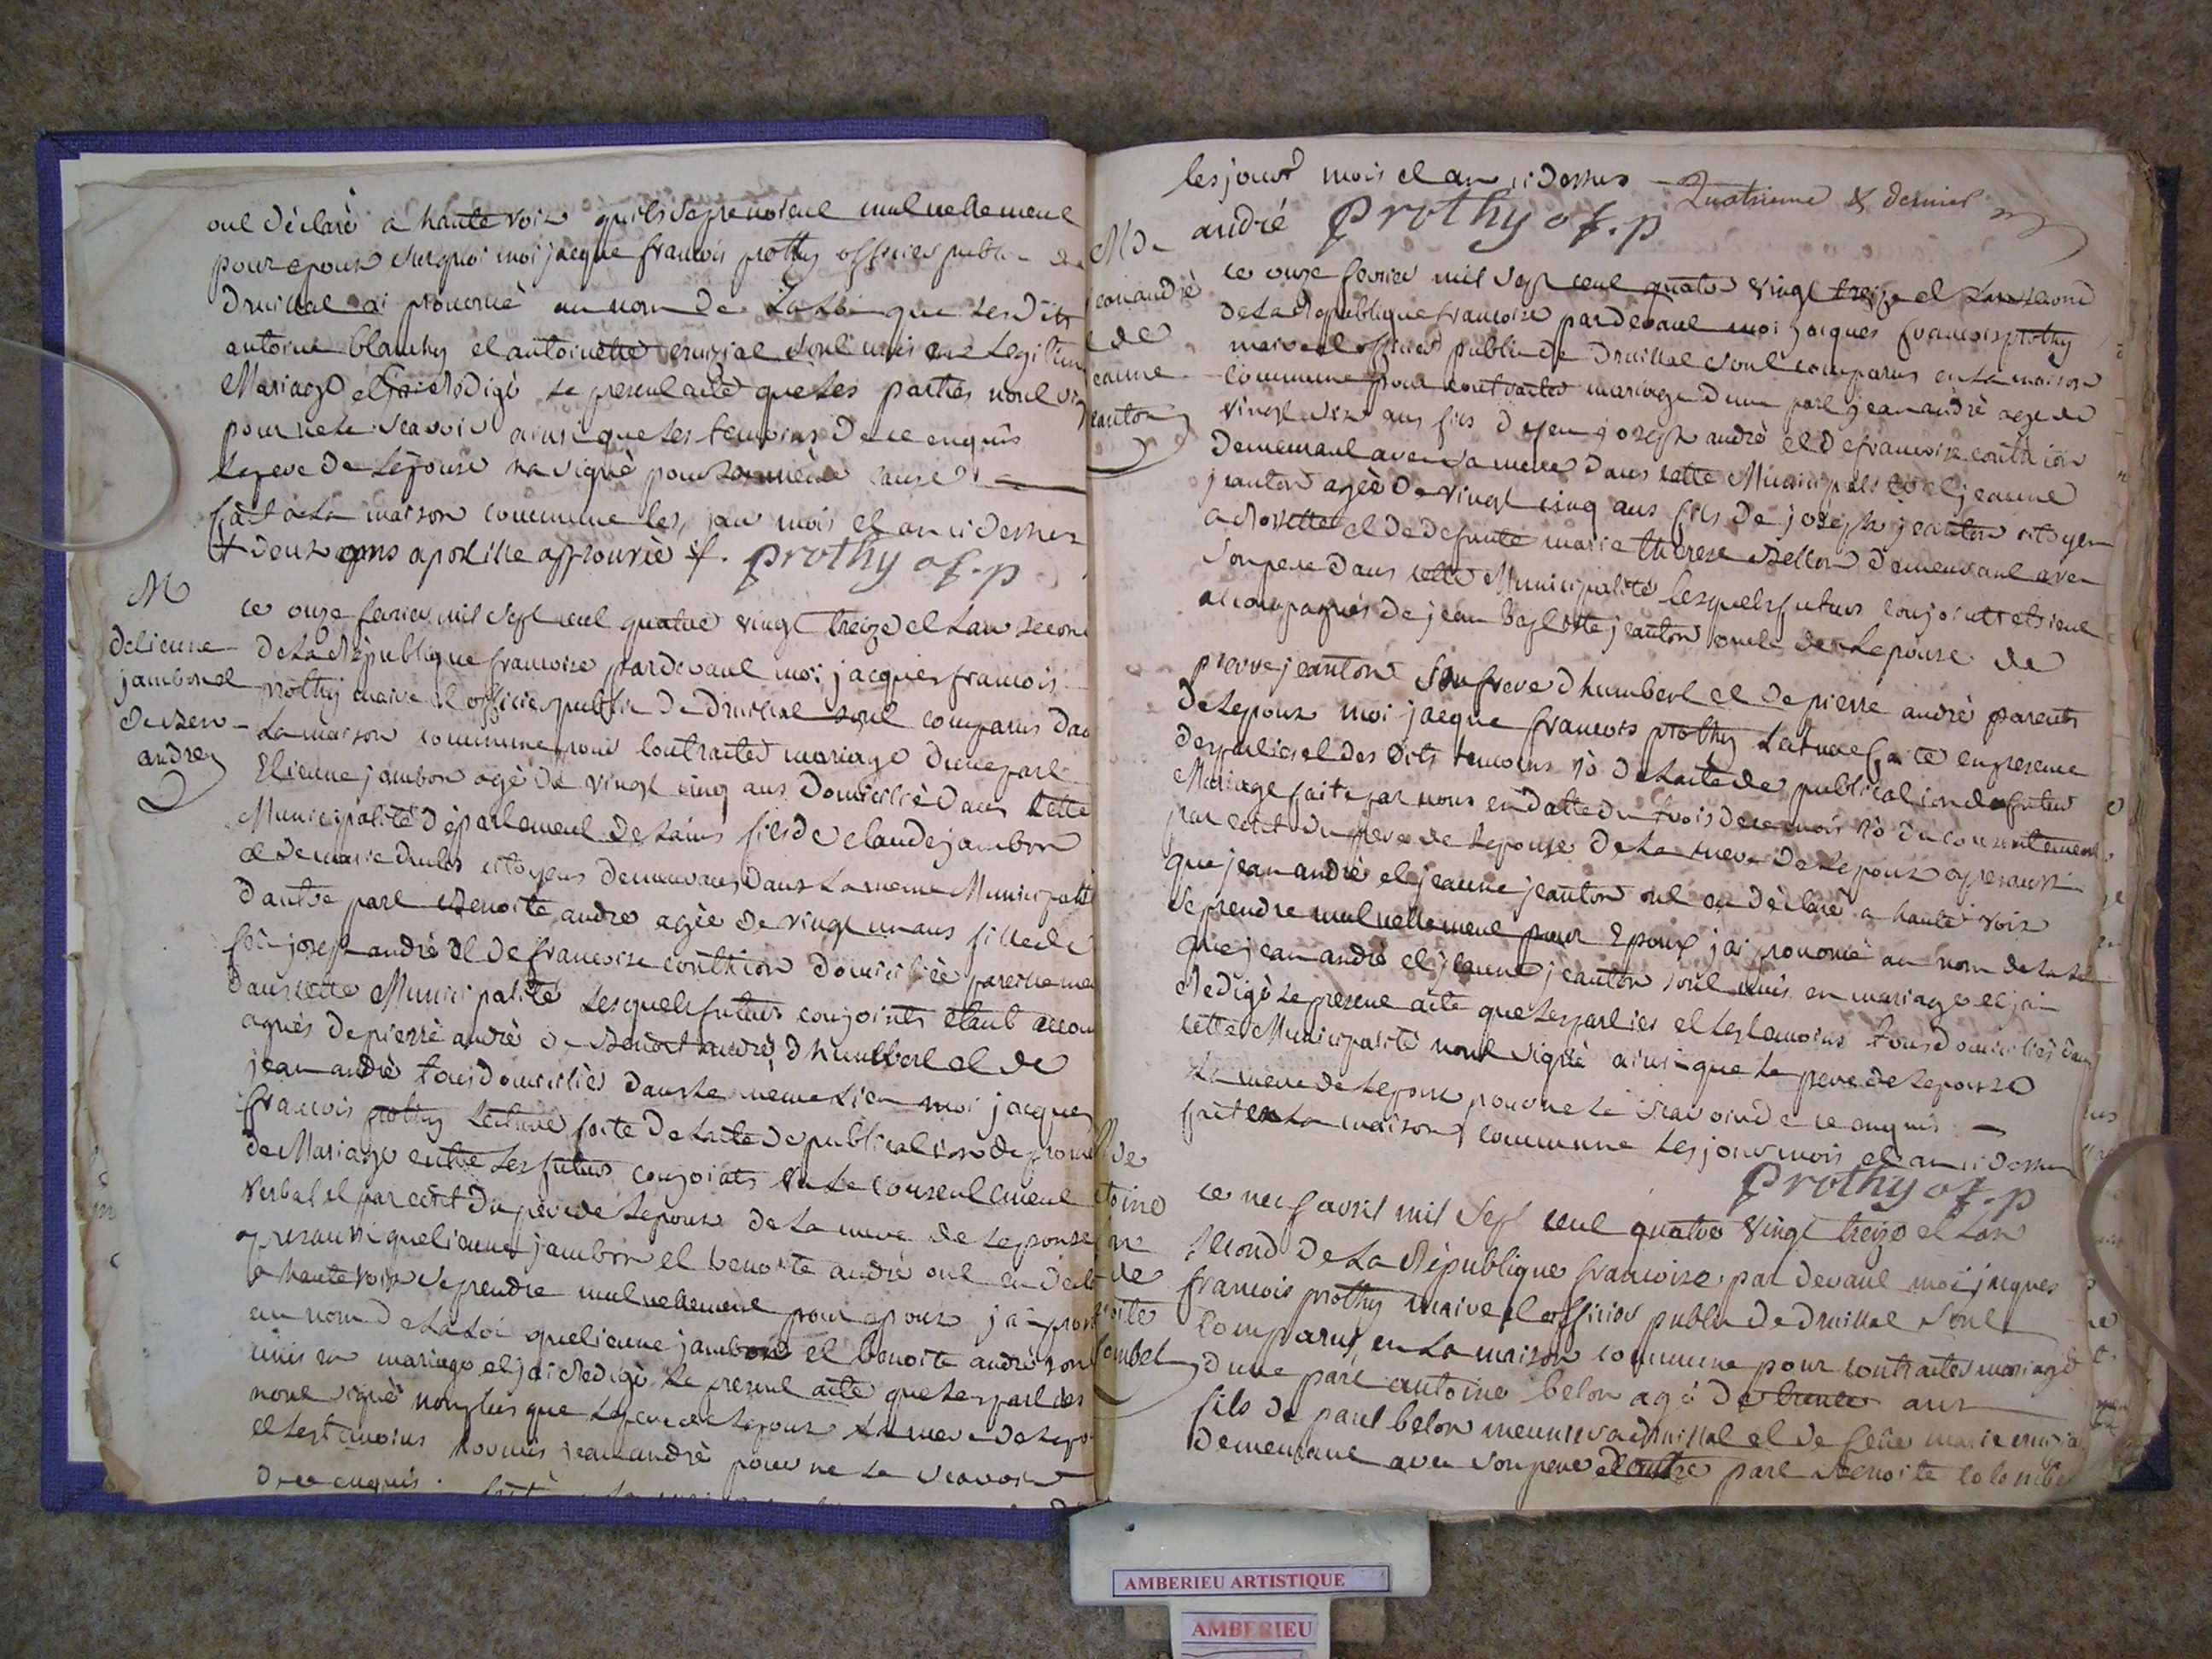 ont dèclaré a haute voix quils se prenoient mutuellement
pour epoux surquoi moi jacque francois prothy officier public
druillat ai prononcé au nom de La Loi que Les dits
antoine blanchy et antoinette sont unis en Legitime
Mariage et jai Rédigé Le present acte que Les parties nont
pour ne Le scavoir ainsi que Les temoins de ce enquis
Le pere de Lépouse na signé pour La même cause
fait a La maison commune les jour mois et an ci dessus
deux apostille approuvée prothy of.p
M
detienne
jambon et
de ben
andre
ce onze fevrier mil sept cent quatre vingt treize et Lan second
de La République francoise pardevant moi jacques francois
prothy maire et officier public de druillat sont comparus dan
La maison commune pour contracter mariage dune part
Etienne jambon agé de vingt cinq ans domicilié dans cette
Municipalité département de Lains fils de claude jambon
et de marie citoyens demeurans dans La meme Municipalité
dautre part Benoite andré agée de vingt un ans fille de
feu joseph andré et de francoise conthion domiciliée pareilleme
dans cette Municipalité Lesquels futurs conjoints etant accom
agnés de pierre andré de Benoit andré dhumbert et de
jean andré tous domicilies dans Le meme Lieu moi jacques
francois prothy Lecture faite de Lacte de publication de prom
de Mariage entre Les futurs conjoints vu Le consentement
verbal et par ecrit du pere de Lepoux de La mere de Lepouse
apres aussi quetienne jambon et benoite andré ont eu déclar
a haute voix se prendre mutuellement pour epoux jai pron
au nom de La Loi quetienne jambon et benoite andré sont
unis en mariage et jai Rédigé Le present acte que Les parties
nont signé non plus que Le pere de Lepoux La mere de Lepo
et Les temoins hormis jean andré pour ne Le scavoir
de ce enquis. fait a La
les jour mois et an ci dessus Quatrieme & dernier
andré prothy of.p
M de
jean andré
et de
jeanne
jeanton
ce onze fevrier mil sept cent quatre vingt treize et Lan second
de La République francoise pardevant moi jacques francois prothy
maire et officier public de druillat sont comparus en La maison
commune pour contracter mariage dune part jean andré agé de
vingt six ans fils de feu joseph andré et de francoise conthion
demeurant avec sa mere dans cette Municipalité et jeanne
jeanton agée de vingt cinq ans fils de joseph jeanton citoyen
a et de defunte marie therese Bellon demeurant avec
son pere dans cette Municipalité Lesquels futurs conjoints etoient
accompagnés de jean baptiste jeanton oncle de Lepouse de
pierre jeanton son frere dhumbert et de pierre andré parents
de Lepoux moi jacque francois prothy Lecture faite en presence
des parties et des dits temoins 1° de Lacte de publication de futur
Mariage faite par nous en datte du trois de ce mois 2° du consentement
par ecrit du pere de Lepouse de La mere de Lepoux apres aussi
que jean andré et jeanne jeanton ont eu déclaré a haute voix
se prendre mutuellement pour Epoux jai prononcé au nom de La Loi
que jean andré et jeanne jeanton sont unis en mariage et jai
Redigé Le present acte que Les parties et Les temoins tous domiciliés dans
cette Municipalité nont signé ainsi que Le pere de Lepouse
La mere de Lepoux pour ne Le scavoir de ce enquis
fait en La maison commune Les jour mois et an ci dessus
prothy of.p
de
toine
on
de
oite
ombet
ce neuf avril mil sept cent quatre vingt treize et Lan
second de La République francoise par devant moi jacques
francois prothy maire et officier public de druillat sont
comparus en La maison commune pour contracter mariage
dune part antoine belon agé de trente ans
fils de paul belon meunier a druillat et de feue marie
demeurant avec son pere et dautre part Benoite colombe
AMBERIEU ARTISTIQUE
AMBERIEU